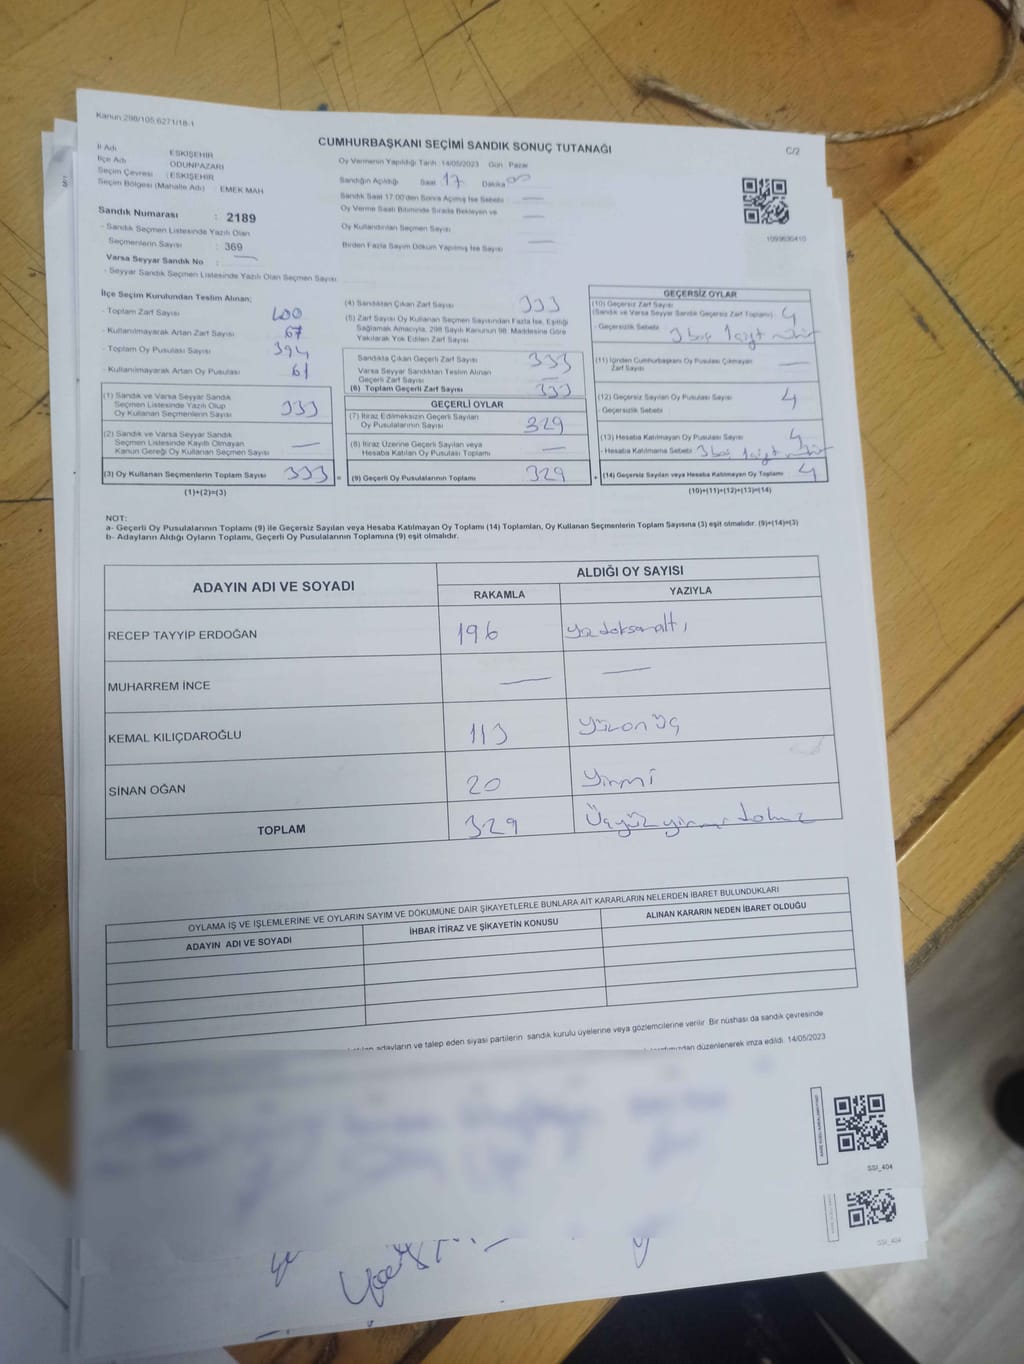 Kanun:298/105,6271/18-1
CUMHURBAŞKANI SEÇİMİ SANDIK SONUÇ TUTANAĞI
C/2
İl Adı : ESKİŞEHİR
İlçe Adı : ODUNPAZARI
Seçim Çevresi : ESKİŞEHİR
Seçim Bölgesi (Mahalle Adı) : EMEK MAH
Sandık Numarası : 2189
- Sandık Seçmen Listesinde Yazılı Olan
Seçmenlerin Sayısı : 369
Varsa Seyyar Sandık No :
- Seyyar Sandık Seçmen Listesinde Yazılı Olan Seçmen Sayısı
Oy Vermenin Yapıldığı Tarih 14/05/2023 Gün Pazar
Sandığın Açıldığı Saat 17 Dakika 00
Sandık Saat 17:00'den Sonra Açılmış İse Sebebi
Oy Verme Saati Bitiminde Sırada Bekleyen ve
Oy Kullandırılan Seçmen Sayısı
Birden Fazla Sayım Döküm Yapılmış İse Sayısı
1099630410
İlçe Seçim Kurulundan Teslim Alınan;
- Toplam Zarf Sayısı 400
- Kullanılmayarak Artan Zarf Sayısı 67
- Toplam Oy Pusulası Sayısı 394
- Kullanılmayarak Artan Oy Pusulası 61
(1) Sandık ve Varsa Seyyar Sandık
Seçmen Listesinde Yazılı Olup
Oy Kullanan Seçmenlerin Sayısı 333
(2) Sandık ve Varsa Seyyar Sandık
Seçmen Listesinde Kayıtlı Olmayan
Kanun Gereği Oy Kullanan Seçmen Sayısı
(3) Oy Kullanan Seçmenlerin Toplam Sayısı 333 =
(1)+(2)=(3)
(4) Sandıktan Çıkan Zarf Sayısı 333
(5) Zarf Sayısı Oy Kullanan Seçmen Sayısından Fazla İse, Eşitliği
Sağlamak Amacıyla, 298 Sayılı Kanunun 98. Maddesine Göre
Yakılarak Yok Edilen Zarf Sayısı
Sandıkta Çıkan Geçerli Zarf Sayısı 333
Varsa Seyyar Sandıktan Teslim Alınan
Geçerli Zarf Sayısı
(6) Toplam Geçerli Zarf Sayısı 333
GEÇERLİ OYLAR
(7) İtiraz Edilmeksizin Geçerli Sayılan
Oy Pusulalarının Sayısı 329
(8) İtiraz Üzerine Geçerli Sayılan veya
Hesaba Katılan Oy Pusulası Toplamı
(9) Geçerli Oy Pusulalarının Toplamı 329 +
GEÇERSİZ OYLAR
(10) Geçersiz Zarf Sayısı
(Sandık ve Varsa Seyyar Sandık Geçersiz Zarf Toplamı) 4
- Geçersizlik Sebebi 3 boş 1 çift mühür
(11) İçinden Cumhurbaşkanı Oy Pusulası Çıkmayan
Zarf Sayısı
(12) Geçersiz Sayılan Oy Pusulası Sayısı 4
- Geçersizlik Sebebi
(13) Hesaba Katılmayan Oy Pusulası Sayısı 4
- Hesaba Katılmama Sebebi 3 boş 1 çift mühür
(14) Geçersiz Sayılan veya Hesaba Katılmayan Oy Toplamı 4
(10)+(11)+(12)+(13)=(14)
NOT:
a- Geçerli Oy Pusulalarının Toplamı (9) ile Geçersiz Sayılan veya Hesaba Katılmayan Oy Toplamı (14) Toplamları, Oy Kullanan Seçmenlerin Toplam Sayısına (3) eşit olmalıdır. (9)+(14)=(3)
b- Adayların Aldığı Oyların Toplamı, Geçerli Oy Pusulalarının Toplamına (9) eşit olmalıdır.
ADAYIN ADI VE SOYADI
ALDIĞI OY SAYISI
RAKAMLA YAZIYLA
RECEP TAYYİP ERDOĞAN 196 yüzdoksanaltı
MUHARREM İNCE
KEMAL KILIÇDAROĞLU 113 Yüzonüç
SİNAN OĞAN 20 Yirmi
TOPLAM 329 Üçyüzyirmidokuz
OYLAMA İŞ VE İŞLEMLERİNE VE OYLARIN SAYIM VE DÖKÜMÜNE DAİR ŞİKAYETLERLE BUNLARA AİT KARARLARIN NELERDEN İBARET BULUNDUKLARI
ADAYIN ADI VE SOYADI İHBAR İTİRAZ VE ŞİKAYETİN KONUSU ALINAN KARARIN NEDEN İBARET OLDUĞU
adayların ve talep eden siyasi partilerin sandık kurulu üyelerine veya gözlemcilerine verilir. Bir nüshası da sandık çevresinde
düzenlenerek imza edildi. 14/05/2023
SSI_404
SSI_404